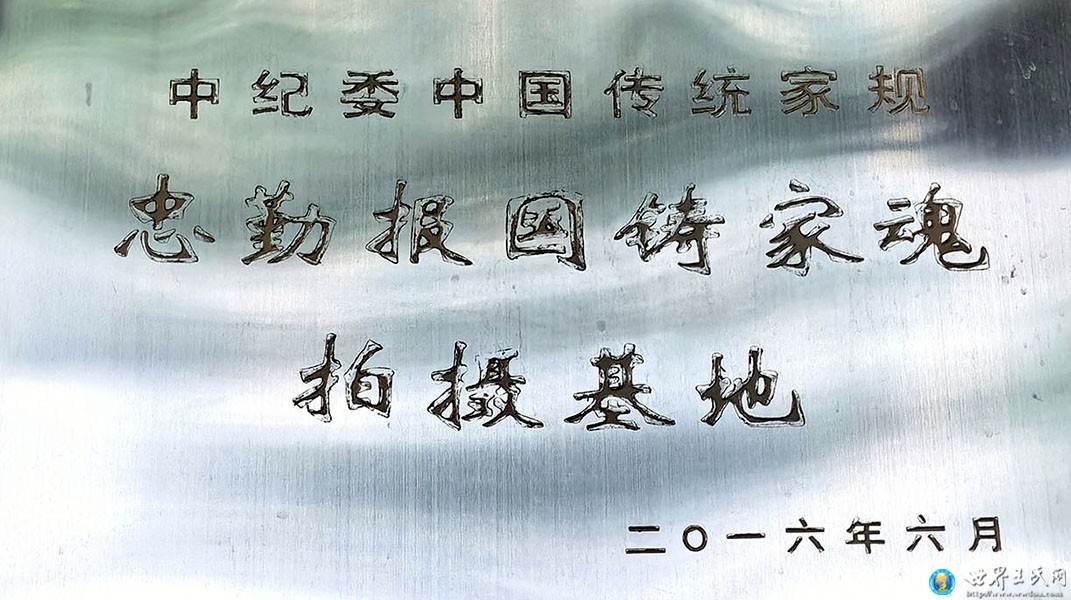 中纪委中国传统家规
忠勤报国铸家魂
拍摄基地
二〇一六年六月
世界王氏网